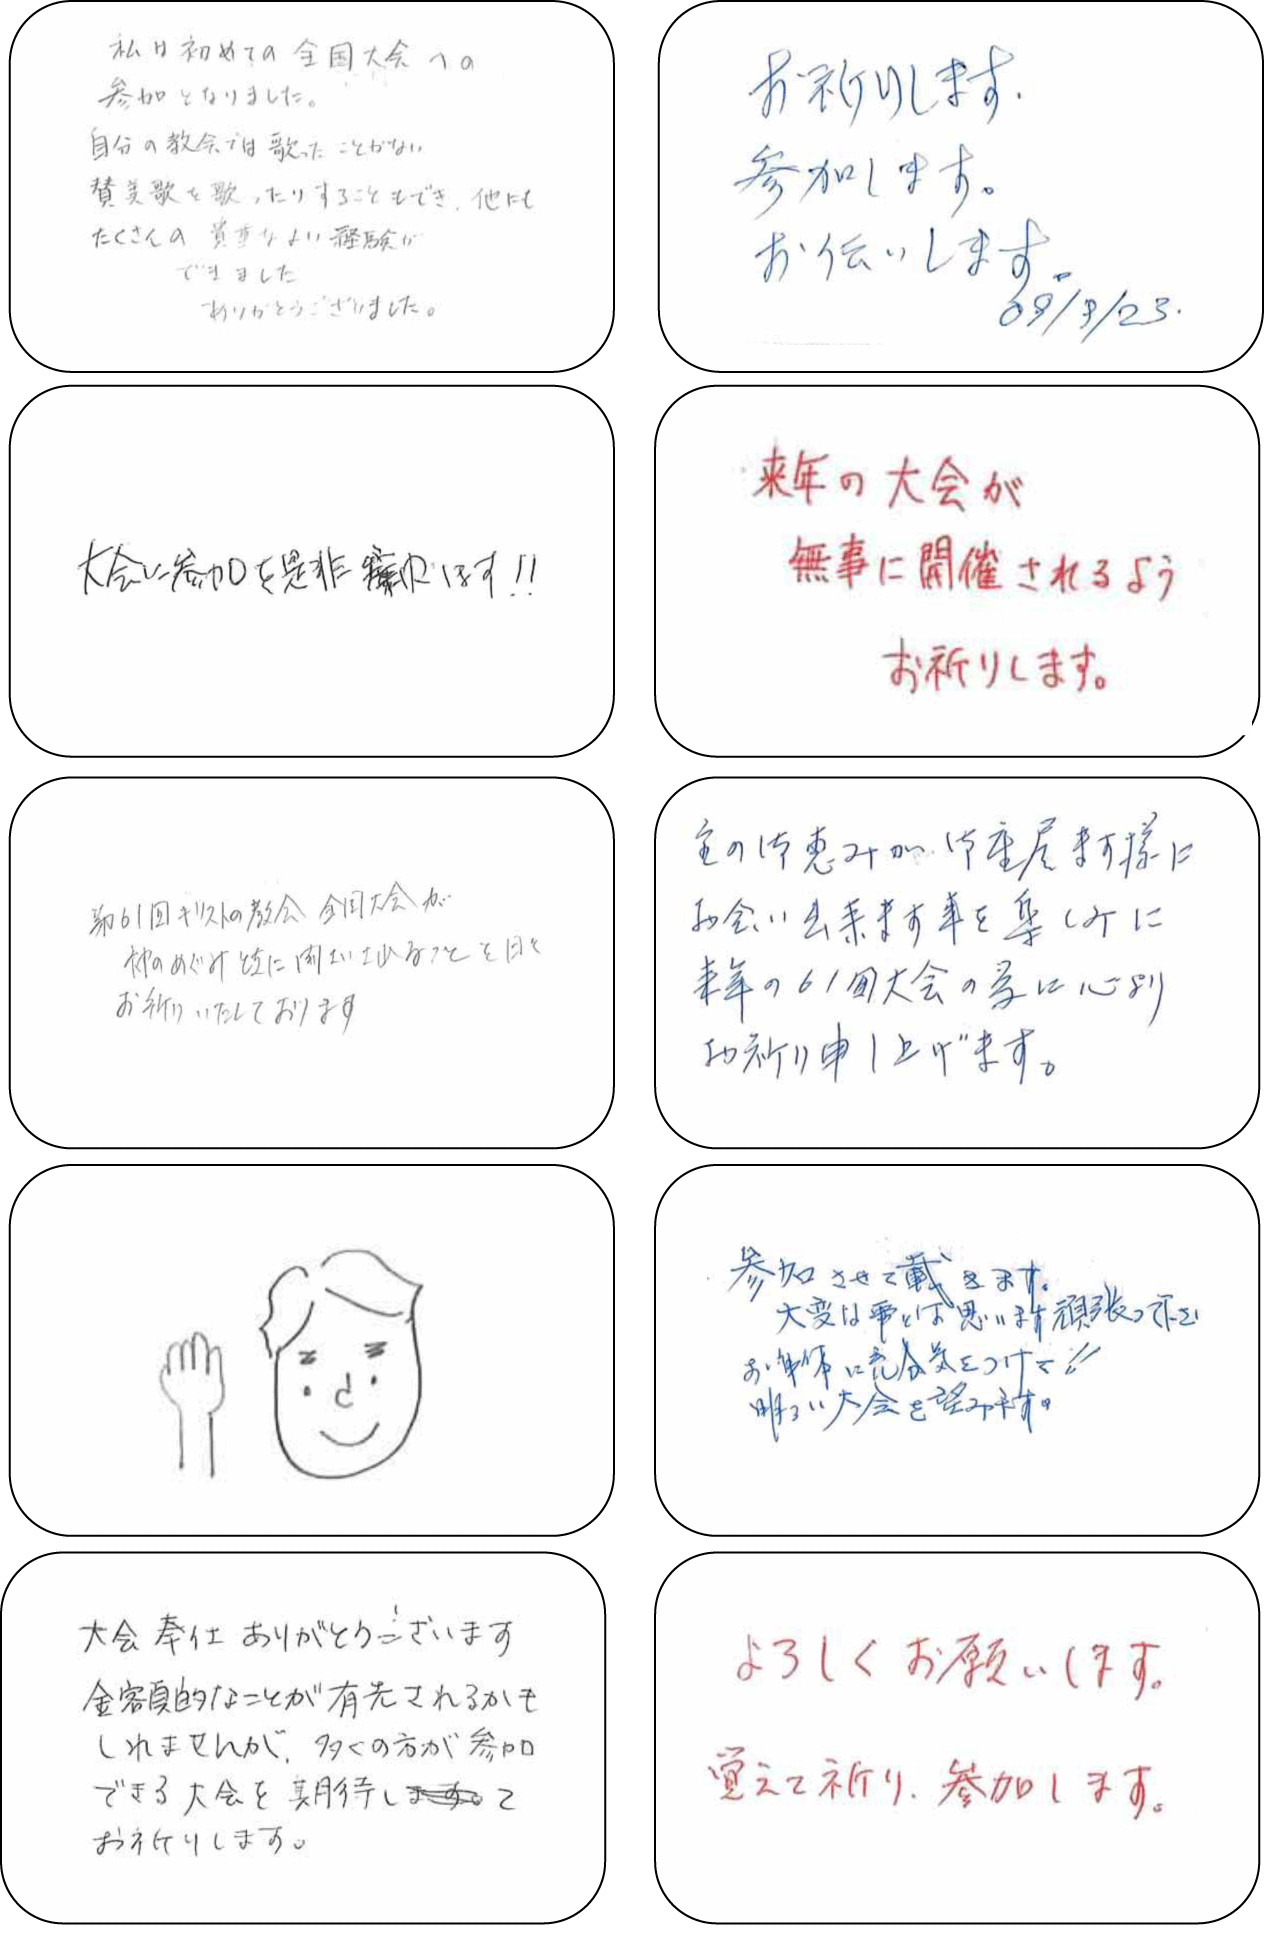 私は初めての全国大会への
参加となりました。
自分の教会では歌ったことがない
賛美歌を歌ったりすることもでき、他にも
たくさんの貴重なよい経験が
できました
ありがとうございました。
お祈りします.
参加します。
お伝いします。
09/9/23.
大会に参加を是非します!!
来年の大会が
無事に開催されるよう
お祈りします。
第61回キリストの教会 全国大会が
神のめぐみ に ることを日々
お祈りいたしております
主の御恵みが御座居ます様に
お会い出来ます事を楽しみに
来年の61回大会の為に心より
お祈り申し上げます。
参加させて戴きます。
大変な事とは思います頑張って下さい
お身体に充分気をつけて!!
明るい大会を望みます。
大会奉仕ありがとうございます
金額的なことが有先されるかも
しれませんが、多くの方が参加
できる大会を期待して
お祈りします。
よろしくお願いします。
覚えて祈り、参加します。